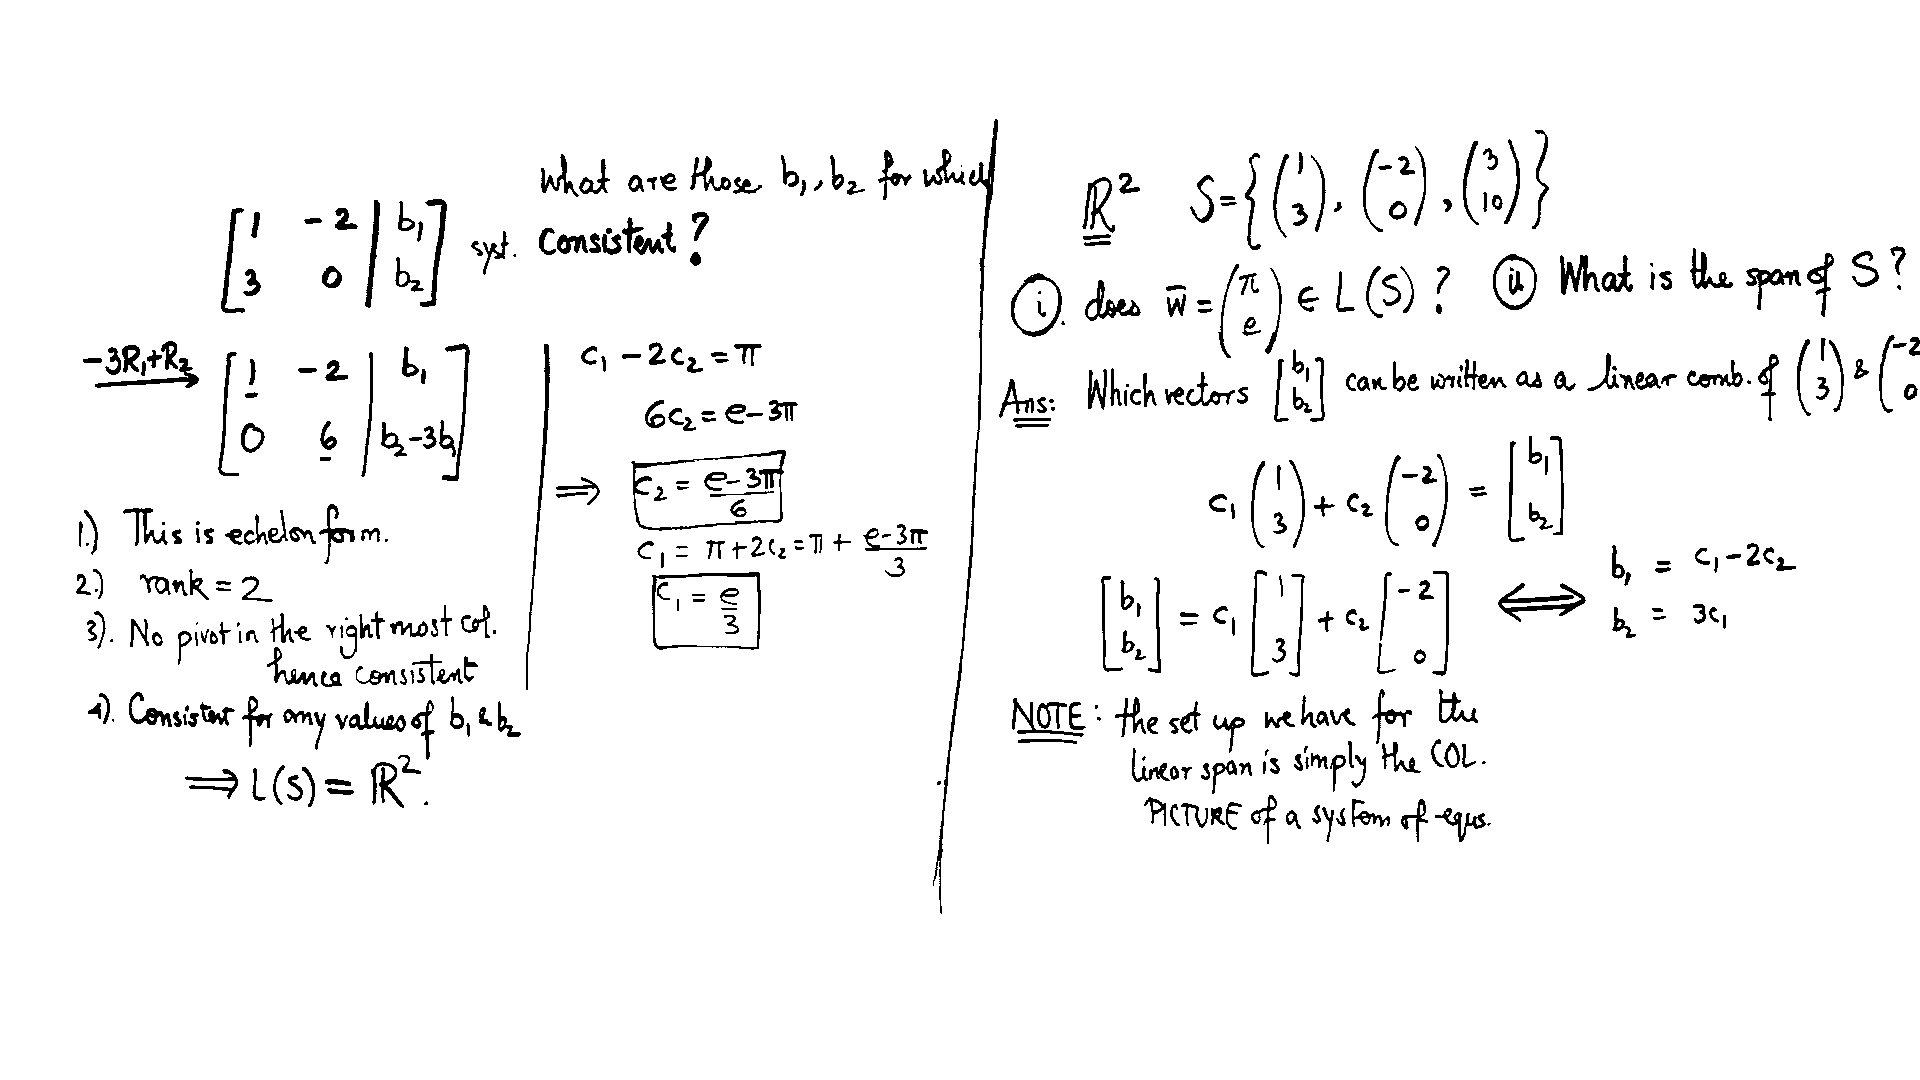 What are those b₁, b₂ for which
[1 -2 | b₁
3 0 | b₂] syst. Consistent?
-3R₁+R₂ → [1 -2 | b₁
0 6 | b₂-3b₁]
1.) This is echelon form.
2.) rank = 2
3). No pivot in the right most col.
hence consistent
4). Consistent for any values of b₁ & b₂
⟹ L(S) = ℝ².
c₁ - 2c₂ = π
6c₂ = e-3π
⟹ c₂ = (e-3π)/6
c₁ = π+2c₂ = π + (e-3π)/3
c₁ = e/3
ℝ² S = { (1 3), (-2 0), (3 10) }
(i). does w̄ = (π e) ∈ L(S)? (ii) What is the span of S?
Ans: Which vectors [b₁ b₂] can be written as a linear comb. of (1 3) & (-2 0
c₁ (1 3) + c₂ (-2 0) = [b₁ b₂]
[b₁ b₂] = c₁ [1 3] + c₂ [-2 0] ⟺ b₁ = c₁-2c₂
b₂ = 3c₁
NOTE: the set up we have for the
linear span is simply the COL.
PICTURE of a system of equs.